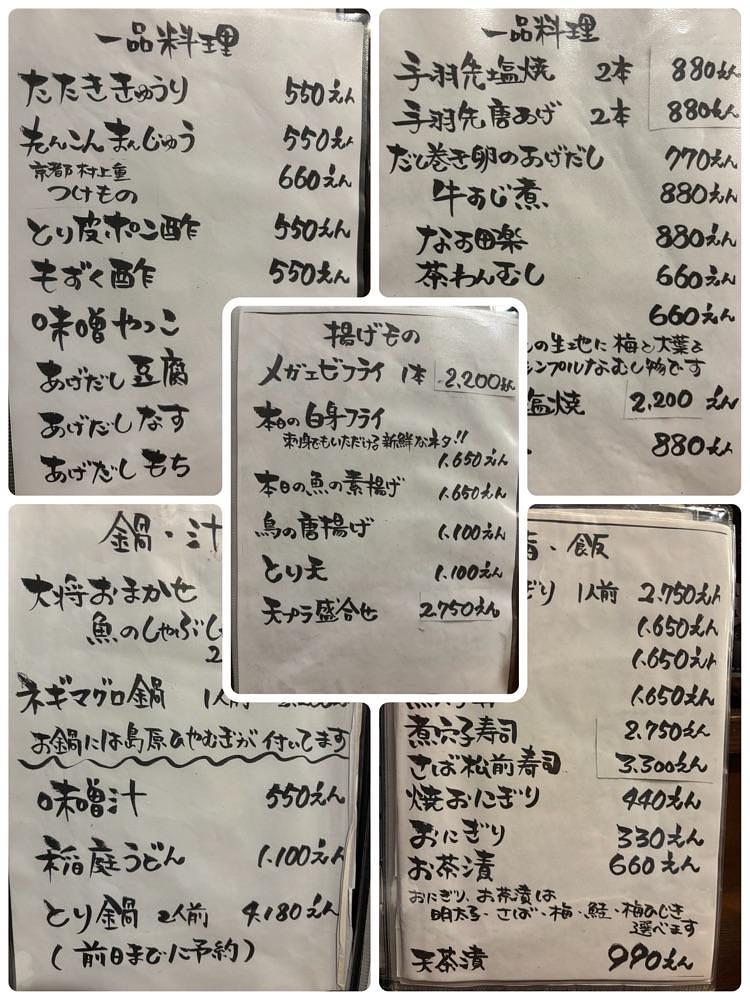 一品料理
たたききゅうり 550えん
れんこんまんじゅう 550えん
京都村上重
つけもの 660えん
とり皮ポン酢 550えん
もずく酢 550えん
味噌やっこ
あげだし豆腐
あげだしなす
あげだしもち
一品料理
手羽先塩焼 2本 880えん
手羽先唐あげ 2本 880えん
だし巻き卵のあげだし 770えん
牛すじ煮 880えん
なす田楽 880えん
茶わんむし 660えん
660えん
の生地に梅と大葉と
シンプルなむし物です
塩焼 2,200えん
880えん
揚げもの
メガエビフライ 1本 2,200えん
本日の白身フライ
刺身でもいただける新鮮なネタ!!
1,650えん
本日の魚の素揚げ 1,650えん
鳥の唐揚げ 1,100えん
とり天 1,100えん
天プラ盛合せ 2,750えん
鍋・汁
大将おまかせ
魚のしゃぶし
2
ネギマグロ鍋 1人前
お鍋には島原ひやむぎが付いてます
味噌汁 550えん
稲庭うどん 1,100えん
とり鍋 2人前 4,180えん
(前日までに予約)
・飯
ぎり 1人前 2,750えん
1,650えん
1,650えん
1,650えん
煮穴子寿司 2,750えん
さば松前寿司 3,300えん
焼おにぎり 440えん
おにぎり 330えん
お茶漬 660えん
おにぎり、お茶漬は
明太子・さば・梅・鮭・梅ひじき
選べます
天茶漬 990えん